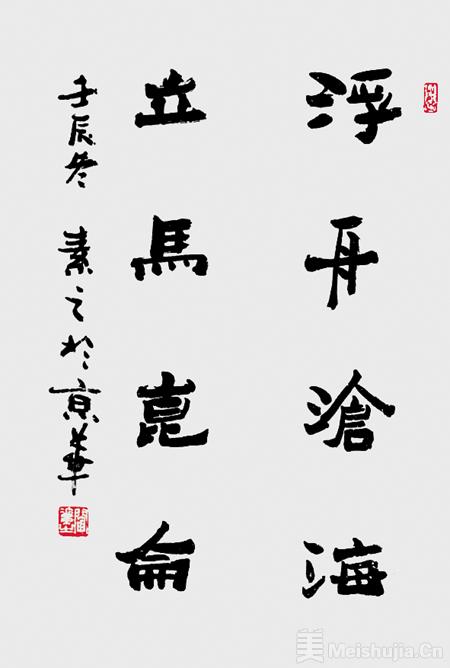 浮舟滄海
立馬崑崙
壬辰冬 素之於京華
美 Meishujia.Cn